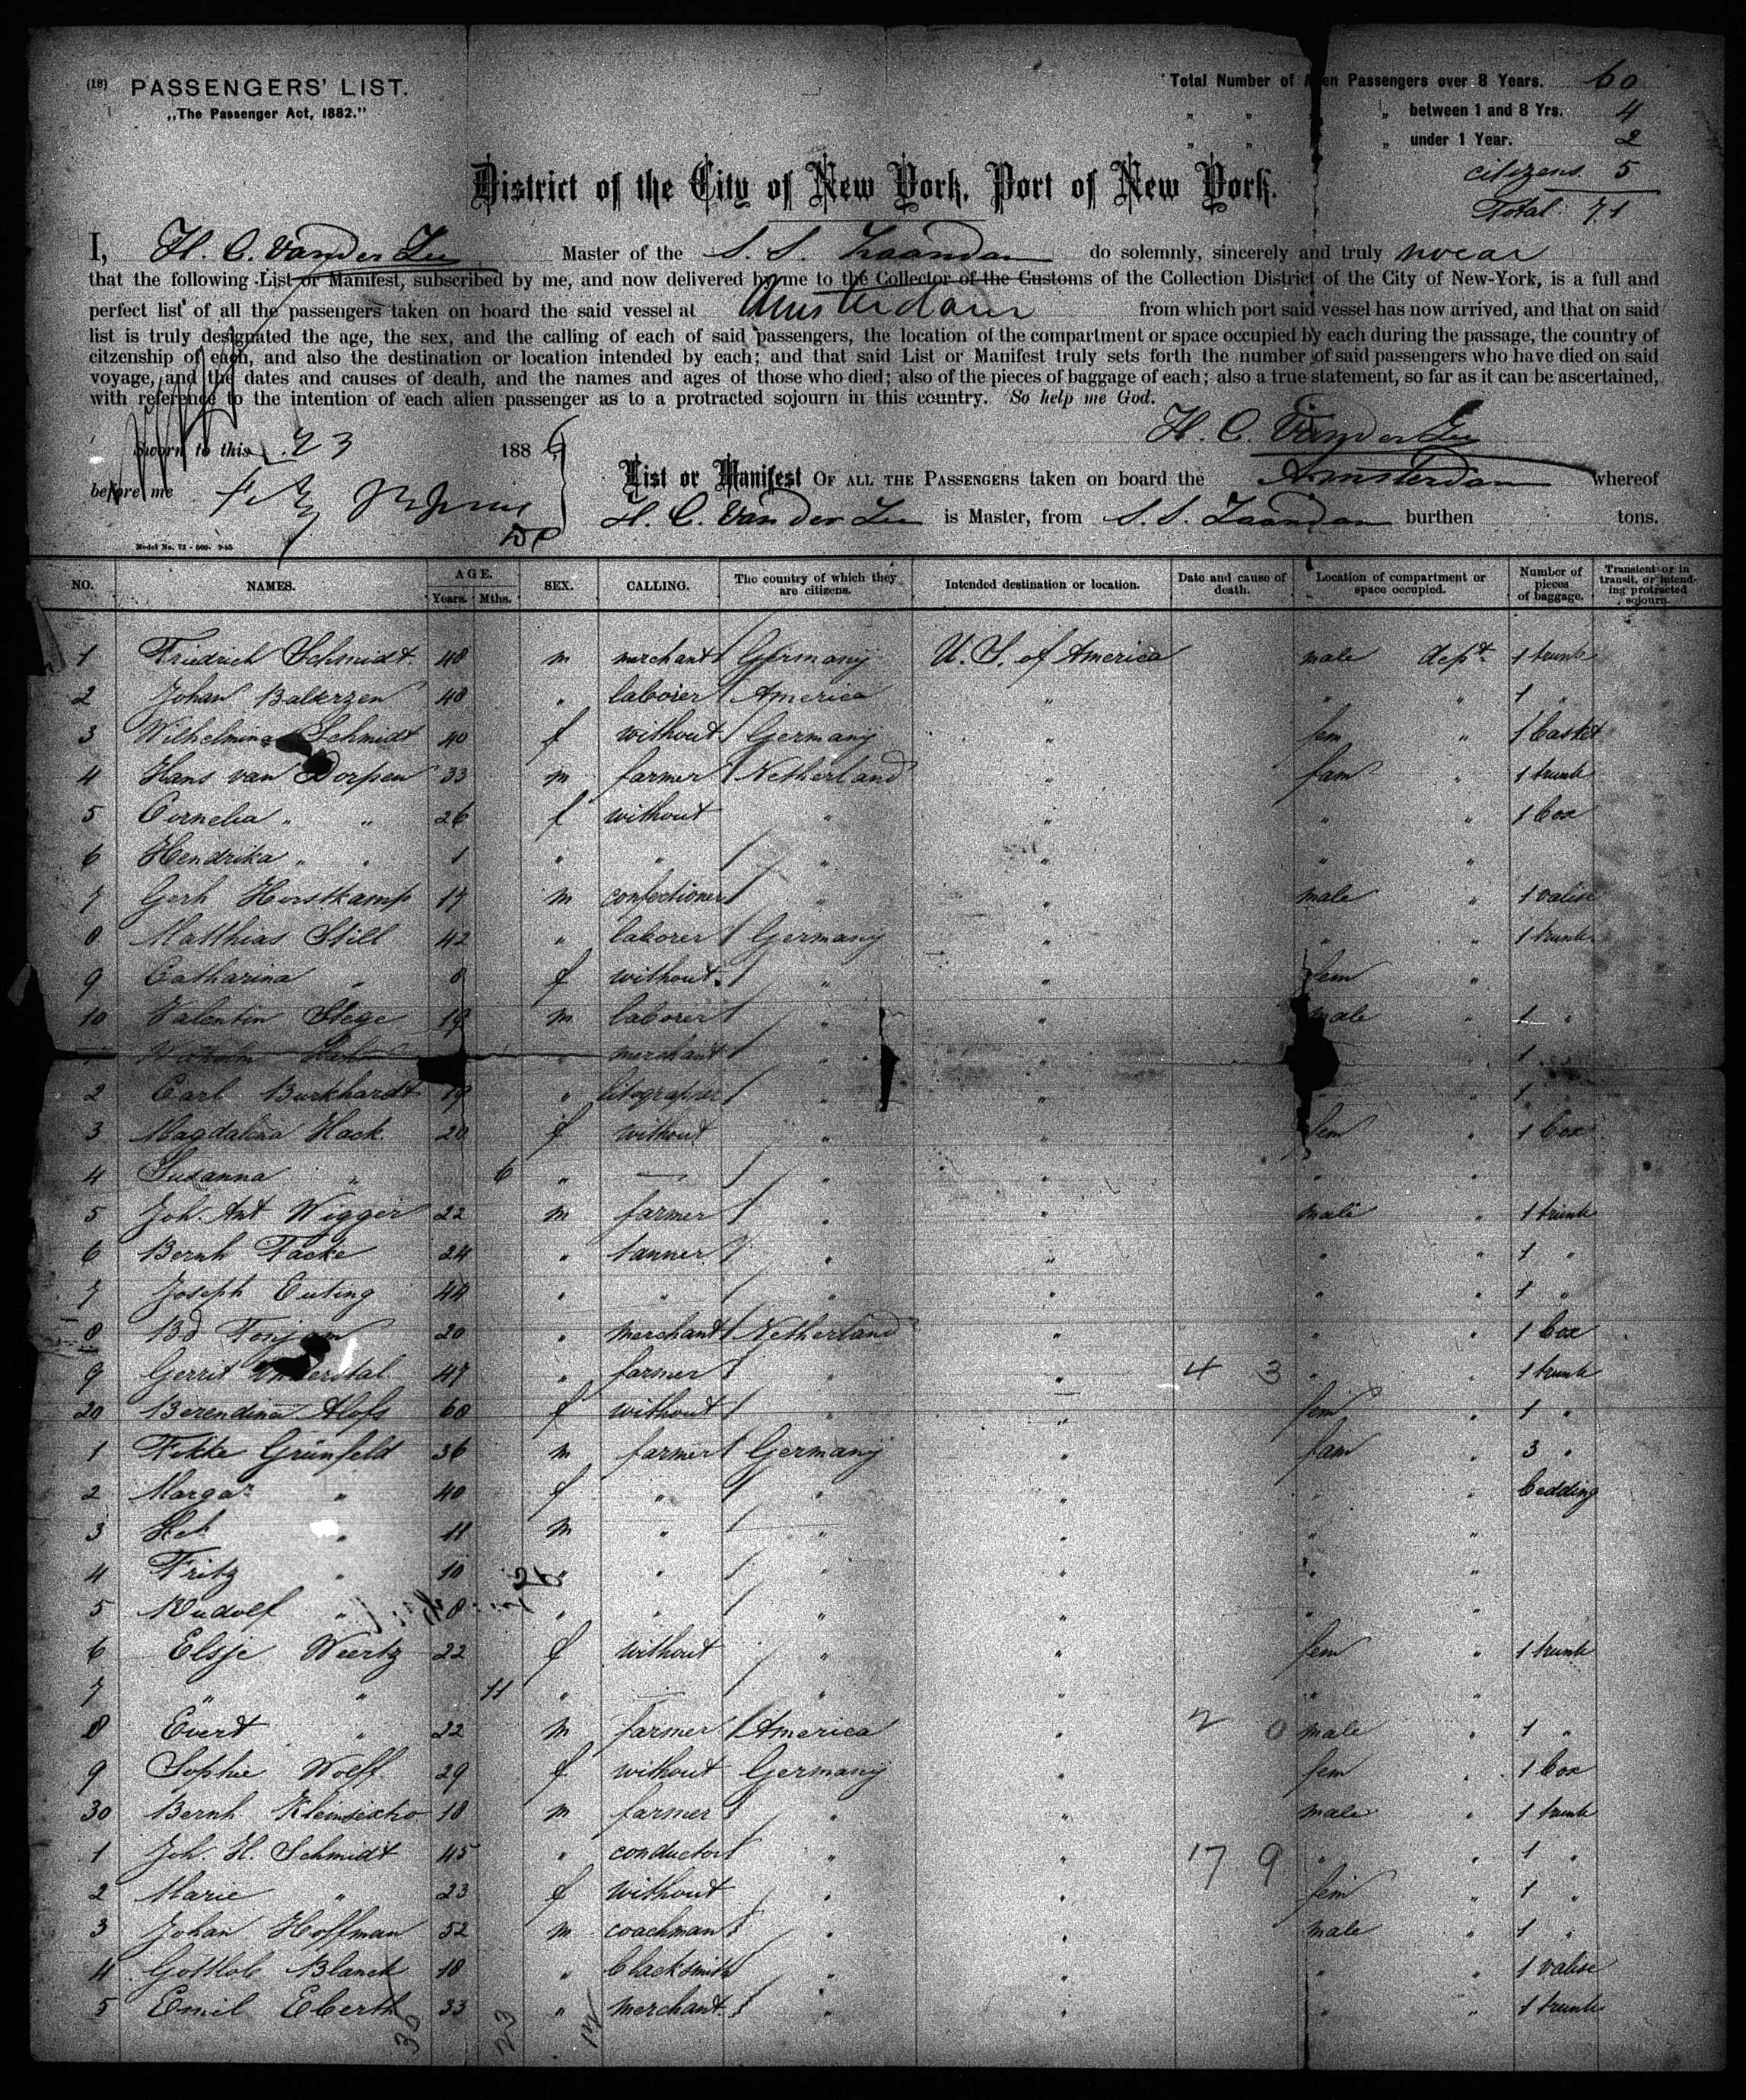 (18) PASSENGERS' LIST.
„The Passenger Act, 1882."
Total Number of Alien Passengers over 8 Years. 60
„ „ „ between 1 and 8 Yrs. 4
„ „ „ under 1 Year. 2
citizens 5
Total 71
District of the City of New York, Port of New York.
I, H. C. Van der Zee Master of the S. S. Zaandam do solemnly, sincerely and truly swear
that the following List or Manifest, subscribed by me, and now delivered by me to the Collector of the Customs of the Collection District of the City of New-York, is a full and
perfect list of all the passengers taken on board the said vessel at Amsterdam from which port said vessel has now arrived, and that on said
list is truly designated the age, the sex, and the calling of each of said passengers, the location of the compartment or space occupied by each during the passage, the country of
citzenship of each, and also the destination or location intended by each; and that said List or Manifest truly sets forth the number of said passengers who have died on said
voyage, and the dates and causes of death, and the names and ages of those who died; also of the pieces of baggage of each; also a true statement, so far as it can be ascertained,
with reference to the intention of each alien passenger as to a protracted sojourn in this country. So help me God.
H. C. Van der Zee
Sworn to this 23 1886
before me
List or Manifest OF ALL THE PASSENGERS taken on board the Amsterdam whereof
H. C. Van der Zee is Master, from S. S. Zaandam burthen tons.
Model No. 72 - 500. 9-85
NO. NAMES. AGE. Years. Mths. SEX. CALLING. The country of which they are citizens. Intended destination or location. Date and cause of death. Location of compartment or space occupied. Number of pieces of baggage. Transient or in transit, or intending protracted sojourn.
1 Friedrich Schmidt 48 m merchant Germany U. S. of America male dept. 1 trunk
2 Johan Balkrzen 48 " laborer America " " " 1 "
3 Wilhelmina Schmidt 40 f without Germany " fem " 1 basket
4 Hans van Dorpen 33 m farmer Netherland " fam " 1 trunk
5 Cornelia " " 26 f without " " " " 1 box
6 Hendrika " " 1 " " " " " "
7 Gerh Horstkamp 17 m confectioner " " male " 1 valise
8 Matthias Still 42 " laborer Germany " " " 1 trunk
9 Catharina " 8 f without " " fem "
10 Valentin Stege 19 m laborer " " male " 1 "
" merchant " 1
2 Carl Burkhardt 19 " litograpner " " " " 1 "
3 Magdalena Hack 20 f without " " fem " 1 box
4 Susanna " 6 " — " " " "
5 Joh. Ant Wigger 22 m farmer " " male " 1 trunk
6 Bernh Facke 24 " tanner " " " " 1 "
7 Joseph Euting 44 " " " " " " 1 "
8 Bd 20 " merchant Netherland " " " 1 box
9 Gerrit 47 " farmer " " 4 3 " " 1 trunk
20 Berendina Alofs 60 f without " " fem " 1 "
1 Fekke Grünfeld 36 m farmer Germany " fam " 3 "
2 Margar " 40 f " " " " " bedding
3 " 11 m " " " " "
4 Fritz " 10 " " " " " "
5 Rudolf " 8 " " " " " "
6 Elsje Weertz 22 f without " " fem " 1 trunk
7 " " 11 " — " " " "
8 Evert " 22 m farmer America " 2 0 male " 1 "
9 Sophie Wolff 29 f without Germany " fem " 1 box
30 Bernh 18 m farmer " " male " 1 trunk
1 Joh. H. Schmidt 45 " conductor " " 17 9 " " 1 "
2 Marie " 23 f without " " fem " 1 "
3 Johan Hoffman 52 m coachman " " male " 1 "
4 Gottlob Blanck 18 " blacksmith " " " " 1 valise
5 Emil Eberth 33 " merchant " " " " 1 trunk
35 23 12